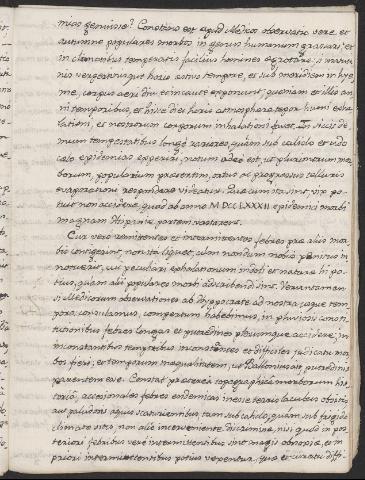 mias genuisse? Constans est apud Medicos observatio vere et
autumno populares morbos in genus humanum grassari, et
inclementius temperatis facilius homines aegrotare, si
vergentique haec aestus tempore, et sub meridiem in hye-
me, corpus aeri diu et incaute exponunt, quoniam et illo an-
ni temporibus, et hisce diei horis atmosphaera tegor humi exha-
lationi, et nostrorum corporum inhalationi favet. In siccis de-
mum tempestatibus longe rariores, quam sub calido et udo
caelo epidemias experiri, notum adeo est, ut plurimorum mor-
borum, popularium praesertim, ortus ac progressus telluris
evaporationi respondere videatur. Quae cum ita sint, vix po-
tuit non accidere, quod ab anno MDCCLXXXII epidemici morbi
magnam Hispaniae partem vastarent.
Cur vero remittentes et intermittentes febres prae aliis mor-
bis contigerint, non ita liquet, cum nondum nobis penitus in
notuerit, cui peculiari exhalationum indoli et naturae hi po-
tius, quam alii populares morbi adscribendi sint. Veruntamen
si Medicorum observationes ab Hyppocrate ad nostra usque tem-
pora consulamus, compertum habebimus, in pluviosis consti-
tutionibus febres longas et putredines plerumque accidere; in
inconstantibus temporibus inconstantes et difficiles judicatu mor-
bos fieri; et temporum inaequalitatem, ut Ballonius ait, putredinis
parentem esse. Constat praeterea topographica morborum his-
toria, accessionales febres endemicas in esse terris lacubus obsitis
aut paludosis aquis scaturientibus tam sub calido, quam sub frigido
climate sitis, non alio interveniente discrimine, nisi quod in pos-
teriori febribus vere intermittentibus sint magis obnoxiae, et in
priori intermittentibus potius vexentur. Quae et curatu diffi-